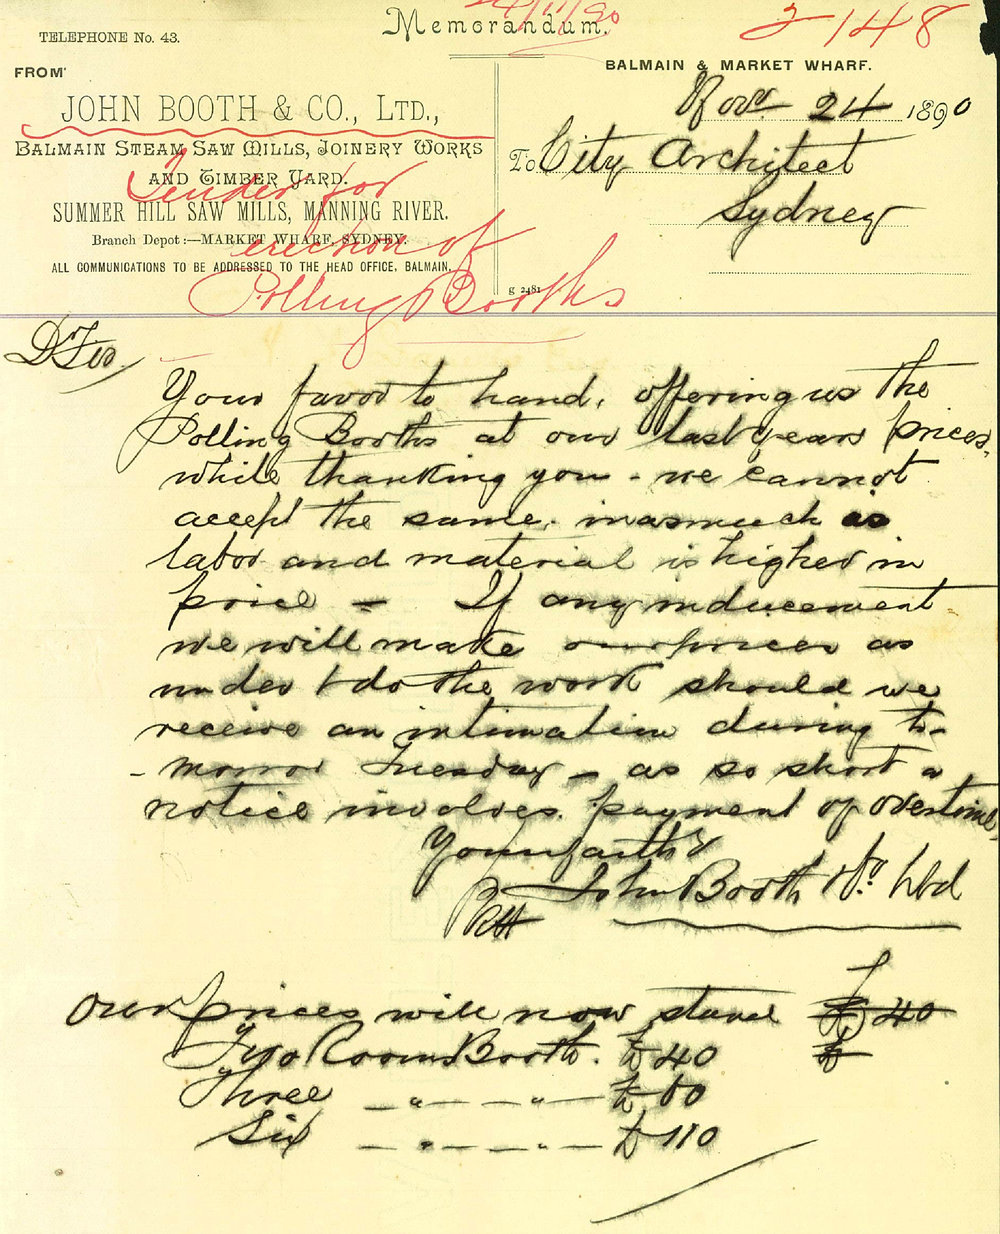 24/11/90
2148
Memorandum.
TELEPHONE No. 43.
FROM
JOHN BOOTH & CO., LTD.,
BALMAIN STEAM SAW MILLS, JOINERY WORKS
AND TIMBER YARD.
SUMMER HILL SAW MILLS, MANNING RIVER.
Branch Depot:—MARKET WHARF, SYDNEY.
ALL COMMUNICATIONS TO BE ADDRESSED TO THE HEAD OFFICE, BALMAIN.
Tender for
erection of
Polling Booths
BALMAIN & MARKET WHARF.
Novr 24 1890
To City Architect
Sydney
g 2481
D Sir
Your favor to hand, offering us the
Polling Booths at our last years prices,
while thanking you - we cannot
accept the same, inasmuch as
labor and material is higher in
price - If any inducement
we will make our prices as
under & do the work should we
receive an intimation during to-
-morrow Tuesday - as so short a
notice involves payment of overtime,
Yours faithfy
John Booth & Co. Ltd
Our prices will now stand £ 40
Two Rooms Booth. £ 40
Three — " — — " — £ 60
Six — " — — " — £ 110